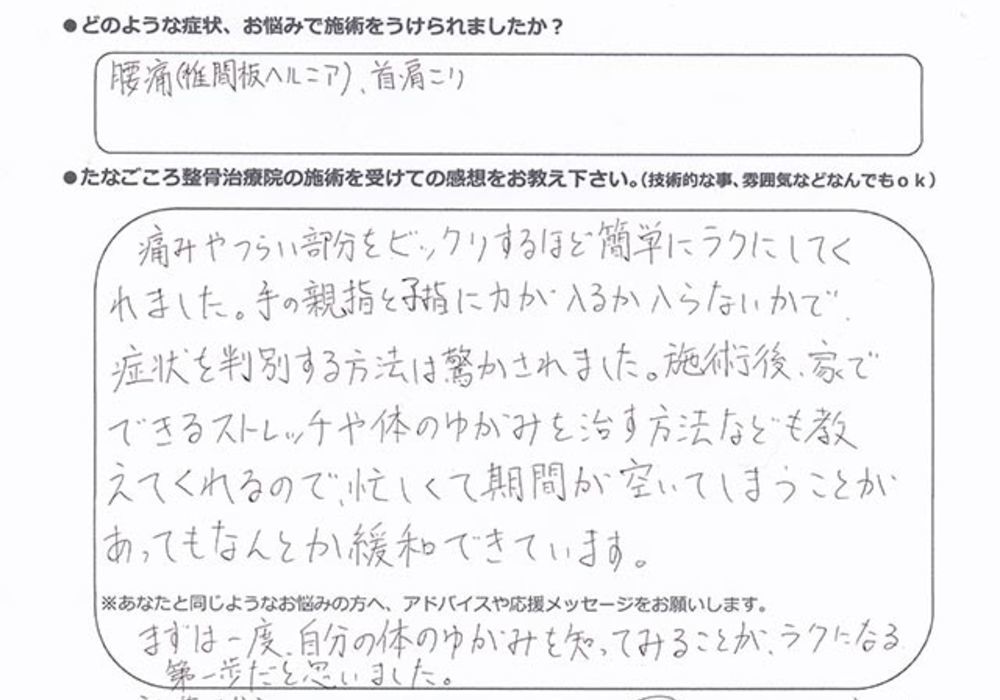 ●どのような症状、お悩みで施術をうけられましたか？
腰痛(椎間板ヘルニア)、首肩こり
●たなごころ整骨治療院の施術を受けての感想をお教え下さい。(技術的な事、雰囲気などなんでもok)
痛みやつらい部分をビックリするほど簡単にラクにしてく
れました。手の親指と子指に力が入るか入らないかで、
症状を判別する方法は驚かされました。施術後、家で
できるストレッチや体のゆがみを治す方法なども教
えてくれるので、忙しくて期間が空いてしまうことが
あってもなんとか緩和できています。
※あなたと同じようなお悩みの方へ、アドバイスや応援メッセージをお願いします。
まずは一度、自分の体のゆがみを知ってみることが、ラクになる
第一歩だと思いました。